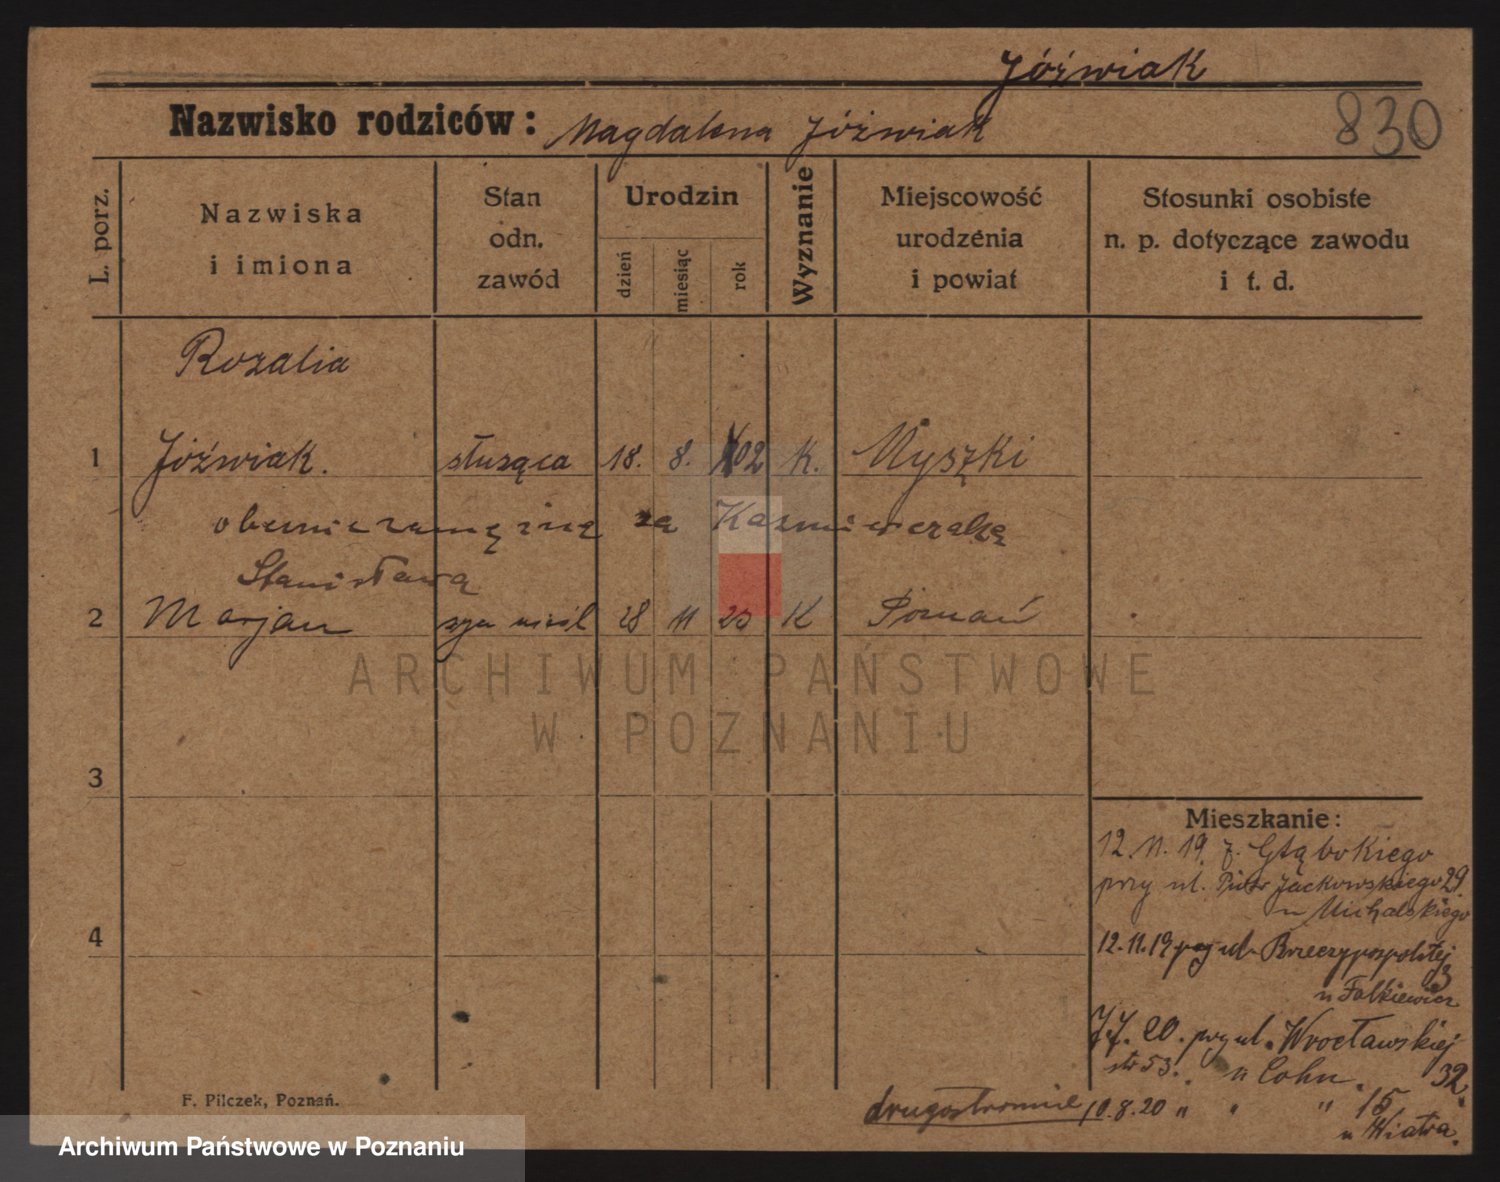 Jóźwiak
Nazwisko rodziców: Magdalena Jóźwiak
830
L. porz.
Nazwiska
i imiona
Stan
odn.
zawód
Urodzin
dzień
miesiąc
rok
Wyznanie
Miejscowość
urodzenia
i powiat
Stosunki osobiste
n. p. dotyczące zawodu
i t. d.
Rozalia
1 Jóźwiak. służąca 18. 8. 02 K. Myszki
obecnie zamężna za Kaźmierczaka
Stanisława
2 Marjan syn nieśl 28 11 25 K Poznań
ARCHIWUM PAŃSTWOWE
W POZNANIU
3
4
Mieszkanie:
12. 11. 19. z. Głąbokiego
przy ul. Piotr Jackowskiego 29.
u Michalskiego
12. 11. 19 przy ul. Rzeczypospolitej
3
u Falkiewicz
7.7. 20. przy ul. Wrocławskiej
str 53. u Cohn. 32.
drugostronnie 10.8.20 " " " 15
u Wiatra.
F. Pilczek, Poznań.
Archiwum Państwowe w Poznaniu